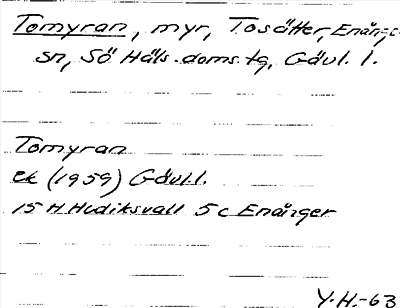 Tomyran, myr, Tosätter, Enång.
sn, Sö Häls. doms.tg, Gävl. l.
Tomyran
ek (1959) Gävl.l.
15 H Hudiksvall 5 c Enånger
Y.H.-63